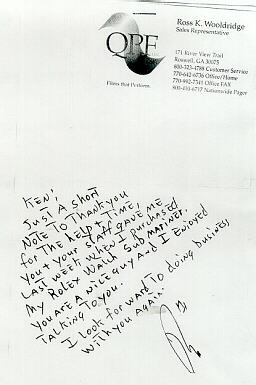 Ross K. Wooldridge
Sales Representative
QPF
171 River View Trail
Roswell, GA 30075
800-323-4788 Customer Service
770-642-6736 Office/Home
770-992-7541 Office FAX
800-410-6717 Nationwide Pager
Films that Perform.
Ken,
Just A short
Note To Thank you
for The help & Time,
You & your staff gave me
Last week when I purchased
My Rolex Watch Sub MARINER.
You are A nice guy And I Enjoyed
Talking To you.
I look forward To doing business
with you AgAin.